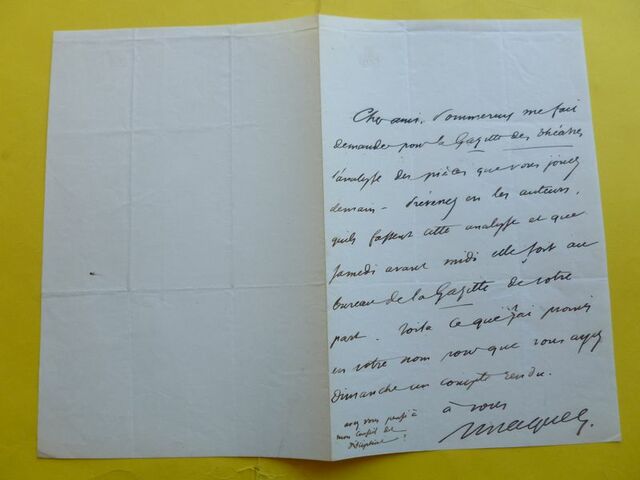 Cher ami, Dommereux me fait
demander pour la Gazette des théâtres
l'analyse des pièces que vous jouez
demain - Prévenez en les auteurs,
qu'ils fassent cette analyse et que
samedi avant midi elle soit au
bureau de la Gazette de votre
part. Voilà ce que j'ai promis
en votre nom pour que vous ayez
dimanche un compte rendu.
à vous
avez vous pensé à
mon conseil de
discipline ?